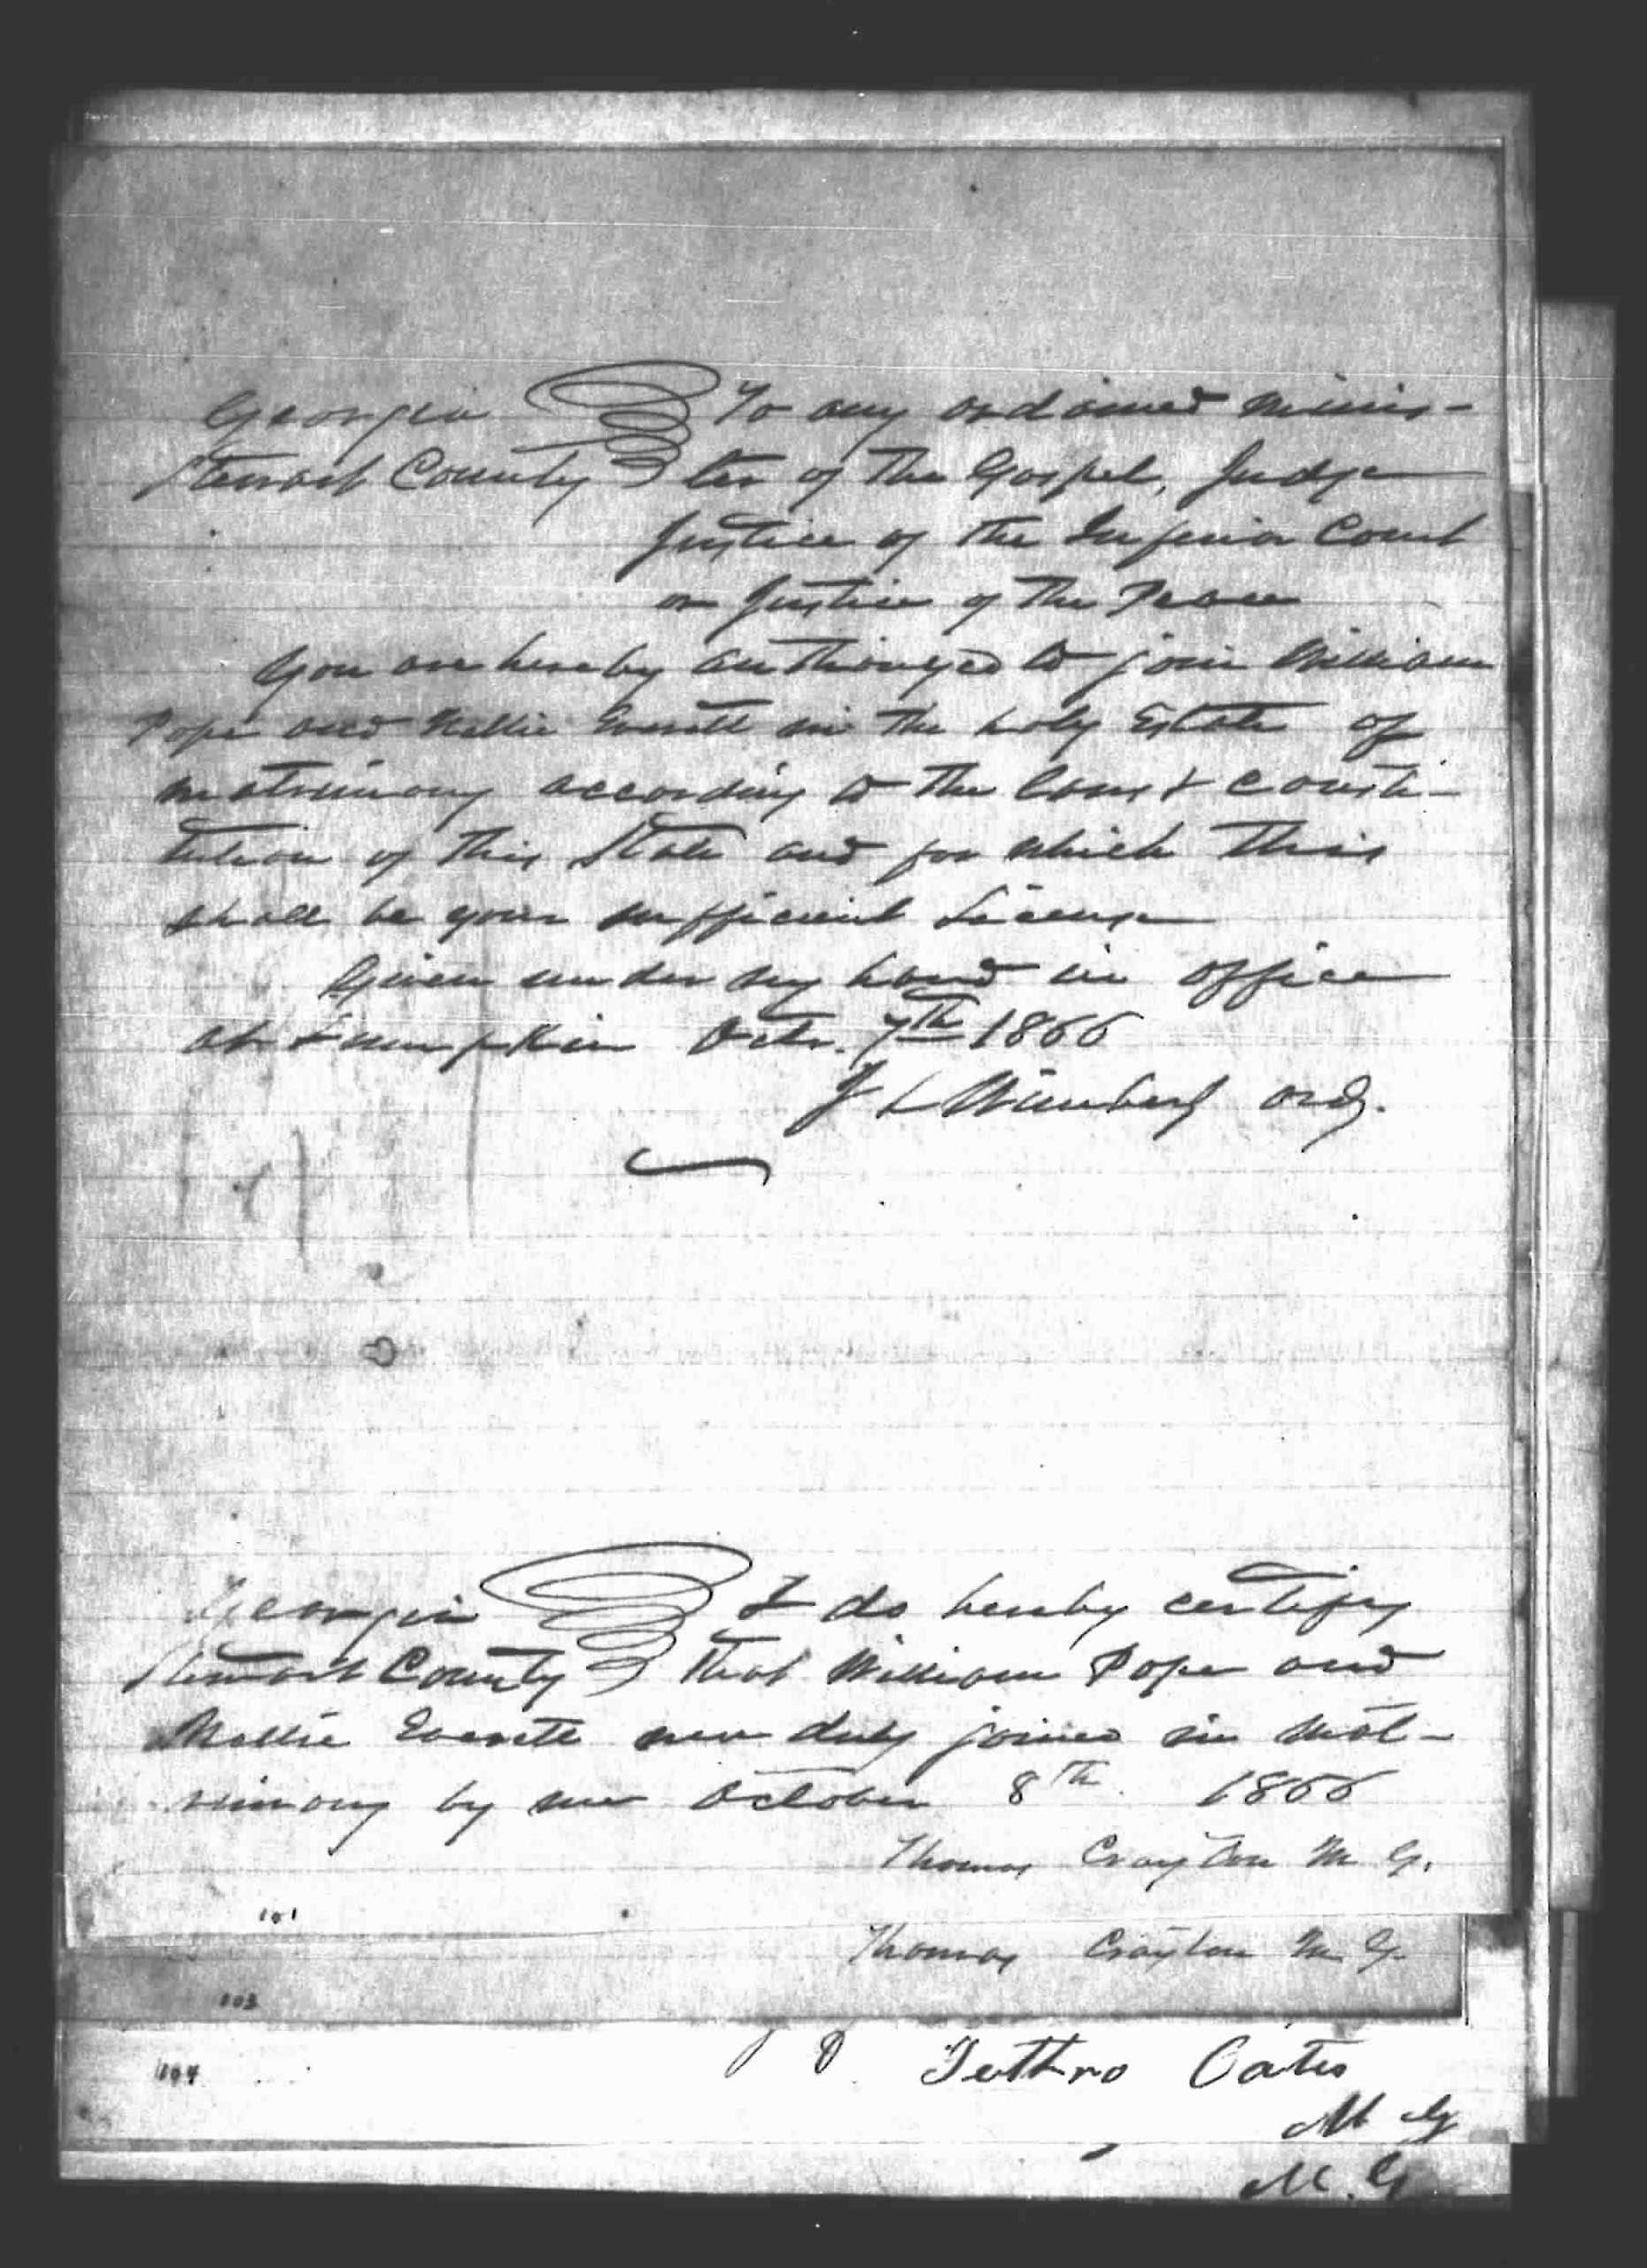 Georgia To any ordained Minis-
Stewart County ter of the Gospel, Judge
Justice of the Inferior Court
or Justice of the Peace
You are hereby authorized to join William
Pope and Mollie Everett in the holy Estate of
matrimony according to the Laws & consti-
tution of this State and for which this
shall be your sufficient License
Given under my hand in office
at Lumpkin Octr. 7th 1866
J L Wimberly Ord.
Georgia I do hereby certify
Stewart County that William Pope and
Mollie Everett were duly joined in mat-
rimony by me October 8th 1866
Thomas Crayton M G.
101
Thomas Crayton M G.
103
104 Jethro Oates
M G
M. G